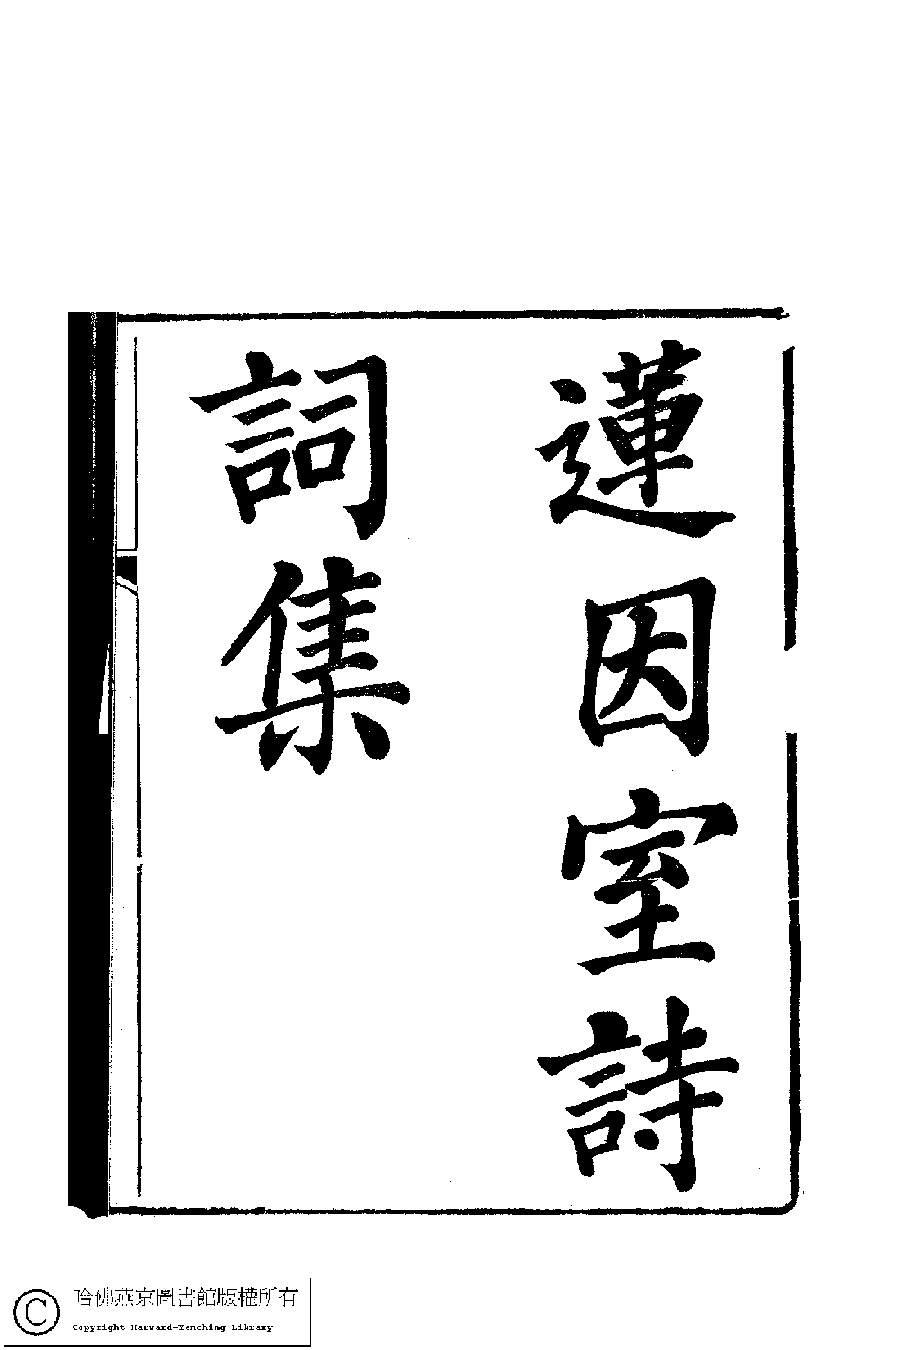 蓮因室詩
詞集
哈佛燕京圖書館版權所有
Copyright Harvard-Yenching Library